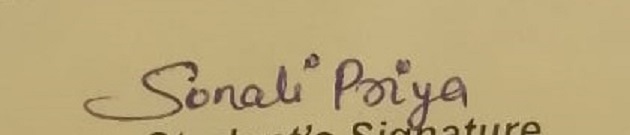 Sonali Priya
Student's Signature